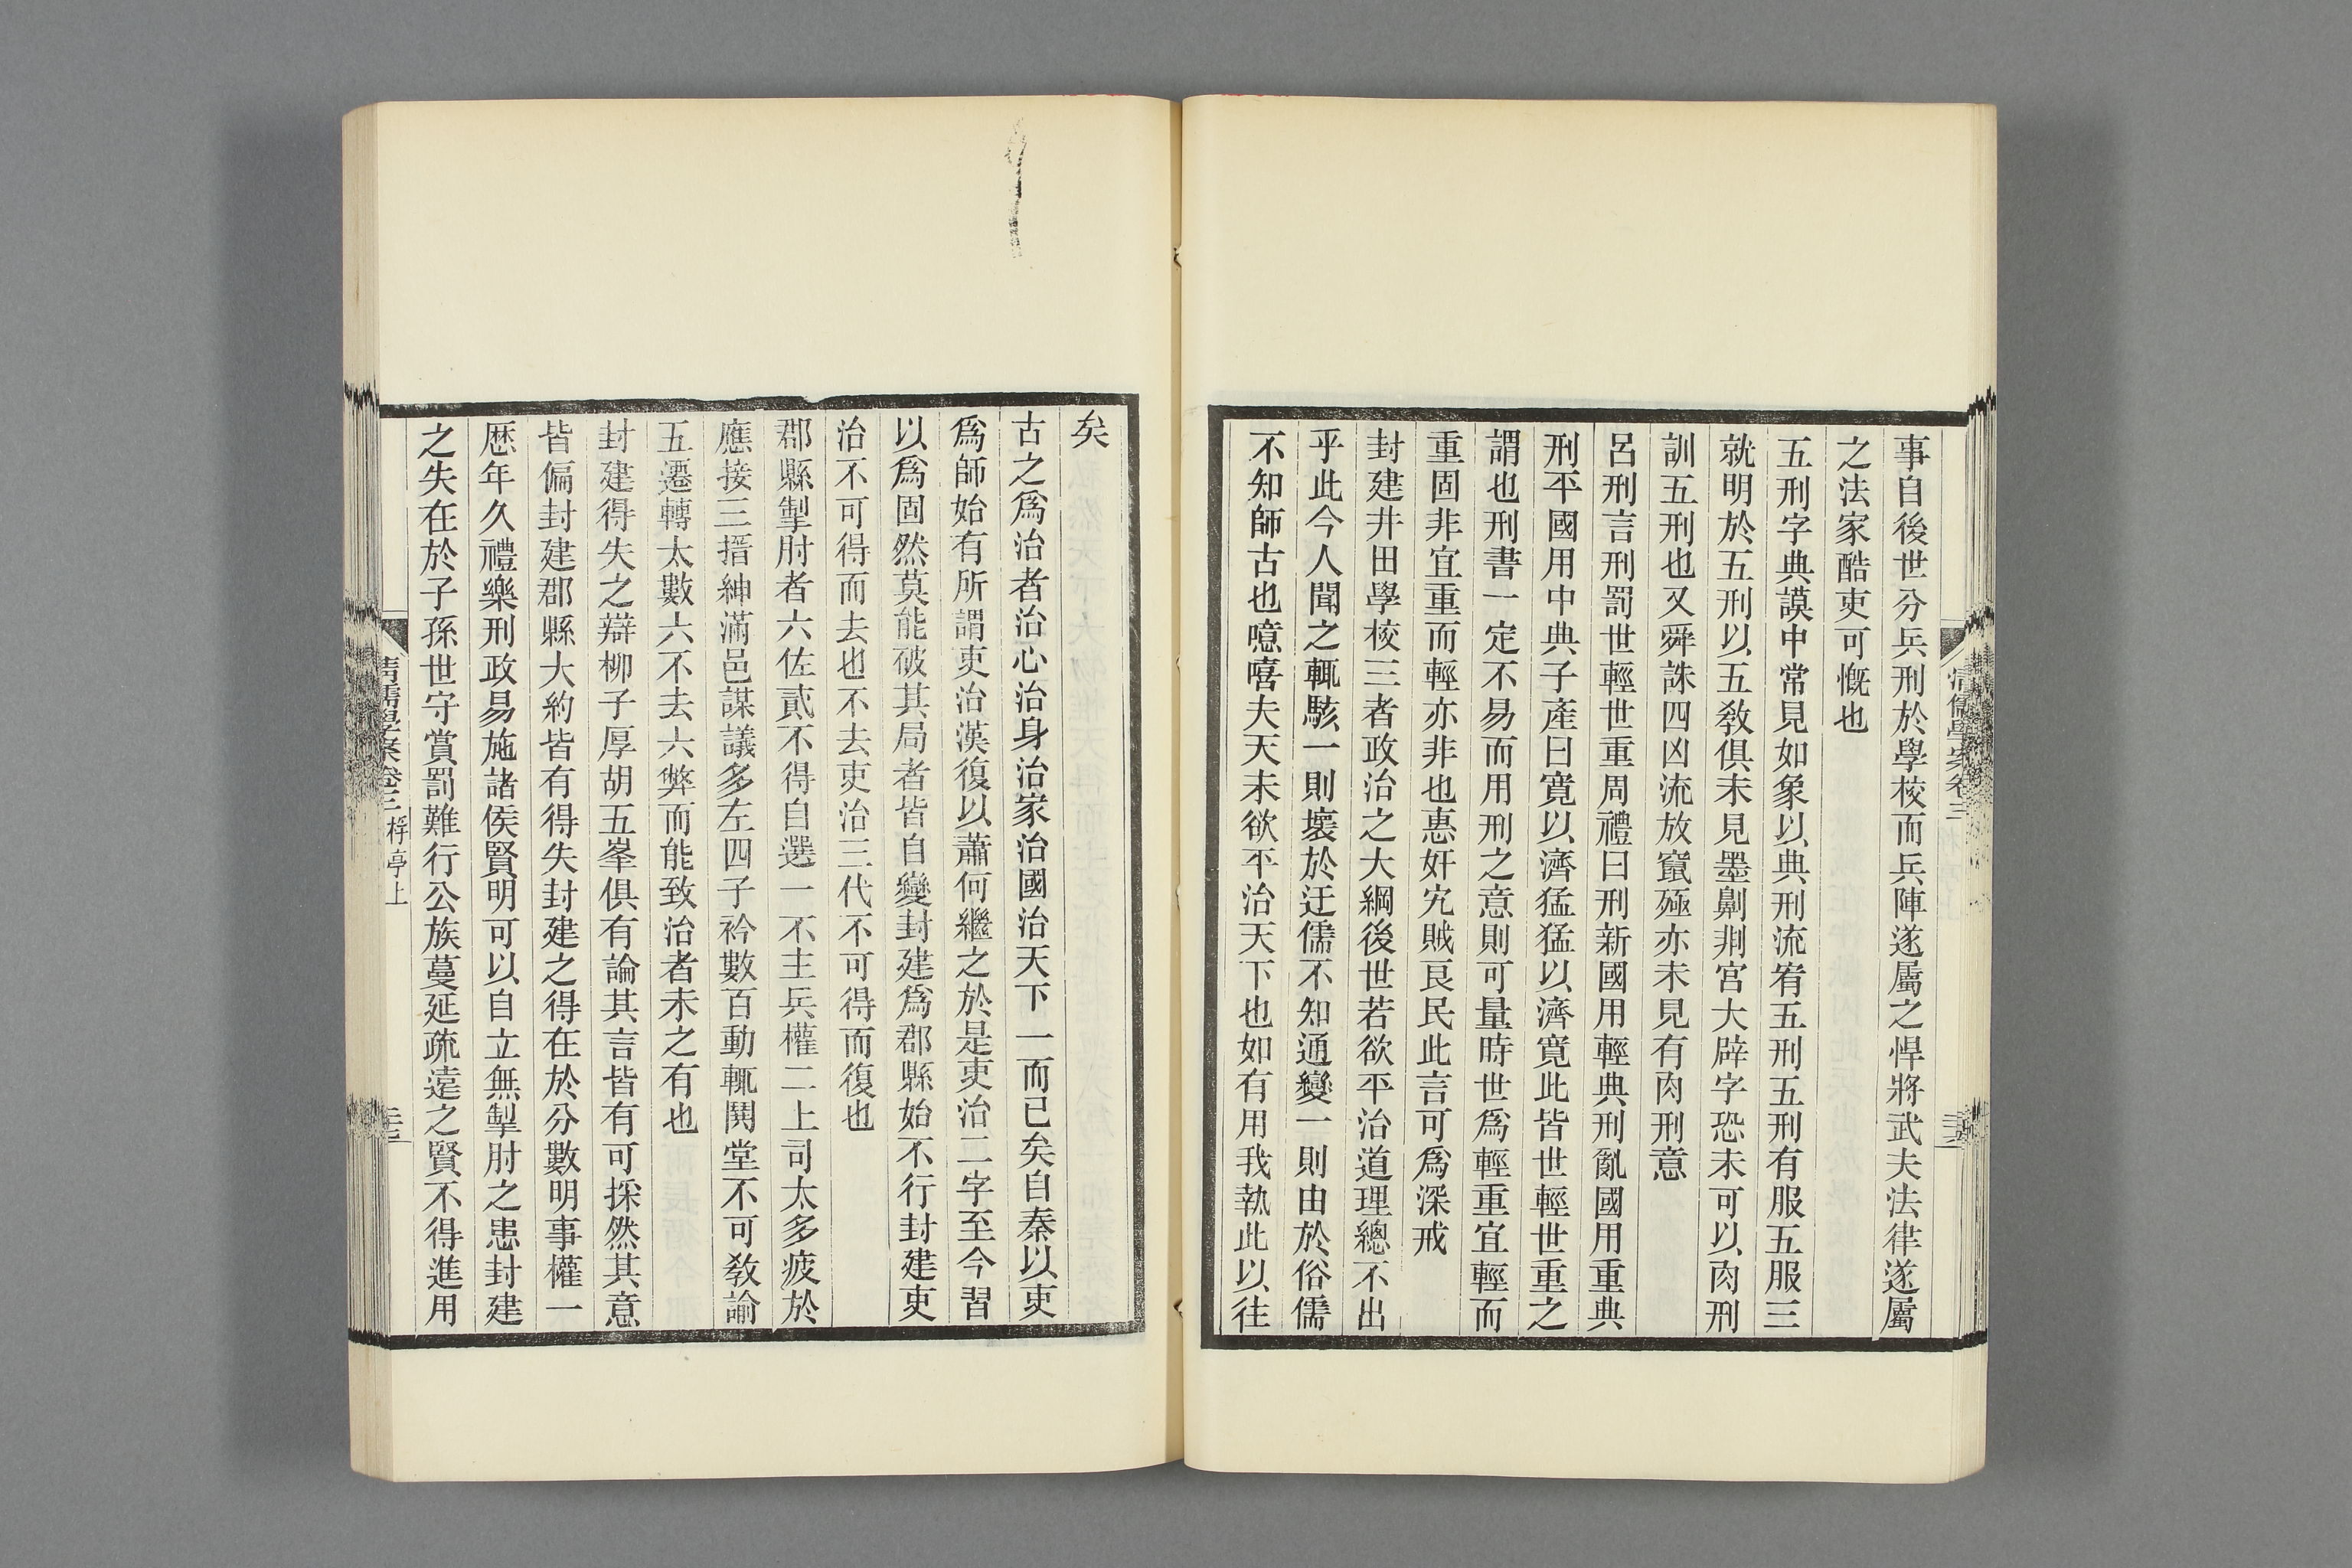 事自後世分兵刑於學校而兵陣遂屬之悍將武夫法律遂屬
之法家酷吏可慨也
五刑字典謨中常見如象以典刑流宥五刑五刑有服五服三
就明於五刑以五敎俱未見墨劓剕宮大辟字恐未可以肉刑
訓五刑也又舜誅四凶流放竄殛亦未見有肉刑意
呂刑言刑罰世輕世重周禮曰刑新國用輕典刑亂國用重典
刑平國用中典子產曰寬以濟猛猛以濟寬此皆世輕世重之
謂也刑書一定不易而用刑之意則可量時世爲輕重宜輕而
重固非宜重而輕亦非也惠奸宄賊良民此言可爲深戒
封建井田學校三者政治之大綱後世若欲平治道理總不出
乎此今人聞之輒駭一則壞於迂儒不知通變一則由於俗儒
不知師古也噫嘻夫天未欲平治天下也如有用我執此以往
清儒學案卷三
矣
古之爲治者治心治身治家治國治天下一而已矣自秦以吏
爲師始有所謂吏治漢復以蕭何繼之於是吏治二字至今習
以爲固然莫能破其局者皆自變封建爲郡縣始不行封建吏
治不可得而去也不去吏治三代不可得而復也
郡縣掣肘者六佐貳不得自選一不主兵權二上司太多疲於
應接三搢紳滿邑謀議多左四子衿數百動輒鬨堂不可敎諭
五遷轉太數六不去六弊而能致治者未之有也
封建得失之辯柳子厚胡五峯俱有論其言皆有可採然其意
皆偏封建郡縣大約皆有得失封建之得在於分數明事權一
歷年久禮樂刑政易施諸侯賢明可以自立無掣肘之患封建
之失在於子孫世守賞罰難行公族蔓延疏遠之賢不得進用
清儒學案卷三 桴亭上